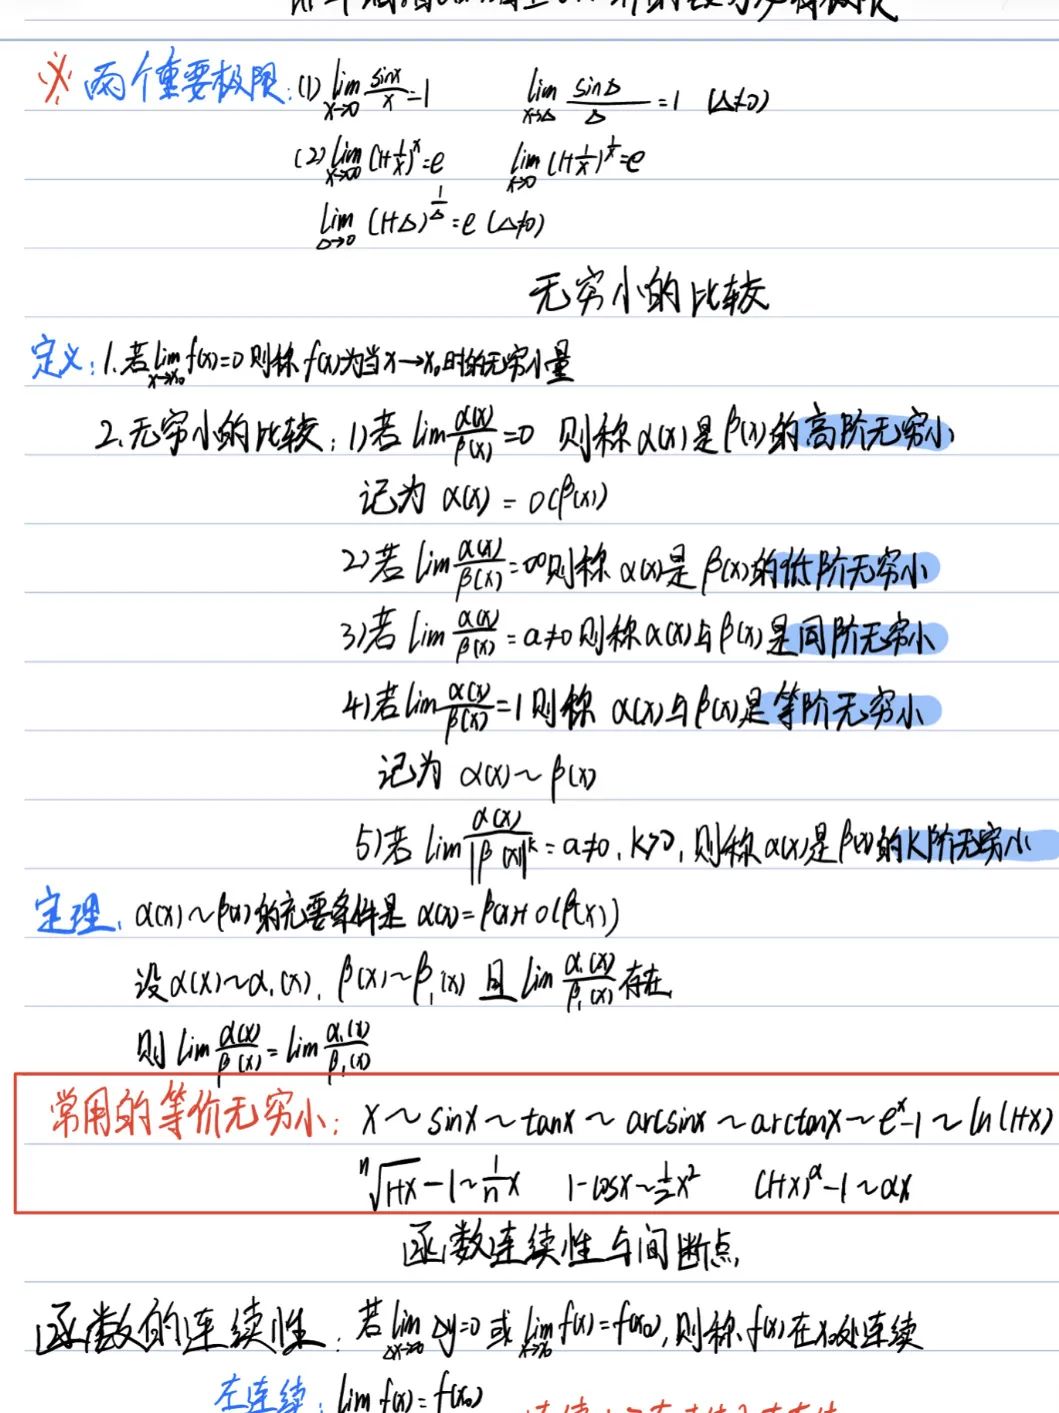 ※两个重要极限:(1) lim x→0 sinx/x=1 lim x→Δ sinΔ/Δ=1 (Δ≠0)
(2) lim x→∞ (1+1/x)^x=e lim x→0 (1+1/x)^(1/x)=e
lim Δ→0 (1+Δ)^(1/Δ)=e (Δ≠0)
无穷小的比较
定义:1.若lim x→x₀ f(x)=0则称f(x)为当x→x₀时的无穷小量
2.无穷小的比较:1)若 lim α(x)/β(x)=0 则称α(x)是β(x)的高阶无穷小
记为 α(x)=o(β(x))
2)若 lim α(x)/β(x)=∞则称α(x)是β(x)的低阶无穷小
3)若 lim α(x)/β(x)=a≠0则称α(x)与β(x)是同阶无穷小
4)若lim α(x)/β(x)=1则称 α(x)与β(x)是等阶无穷小
记为 α(x)~β(x)
5)若 lim α(x)/|β(x)|^k=a≠0,k>0,则称α(x)是β(x)的k阶无穷小
定理、α(x)~β(x)的充要条件是 α(x)=β(x)+o(β(x))
设α(x)~α₁(x),β(x)~β₁(x) 且 lim α₁(x)/β₁(x)存在,
则 lim α(x)/β(x)=lim α₁(x)/β₁(x)
常用的等价无穷小:x~sinx~tanx~arcsinx~arctanx~e^x-1~ln(1+x)
ⁿ√1+x-1~1/n x 1-cosx~1/2x² (1+x)^α-1~αx
函数连续性与间断点
函数的连续性:若lim Δx→0 Δy=0或lim x→x₀ f(x)=f(x₀),则称f(x)在x₀处连续
左连续:lim f(x)=f(x₀)